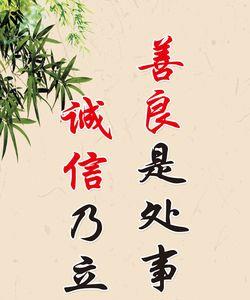 善良是处事
诚信乃立